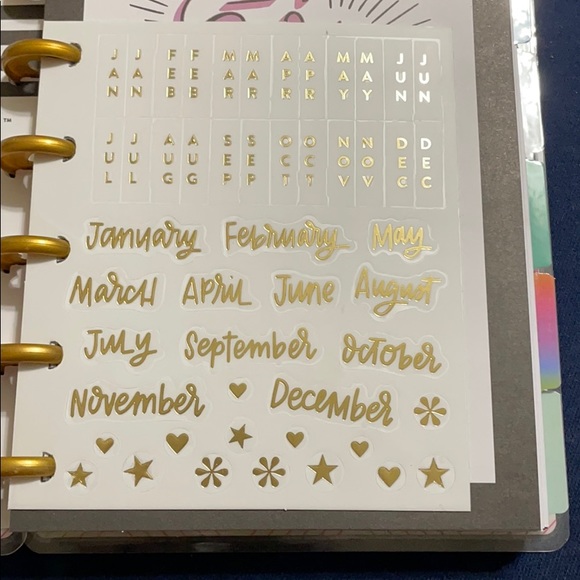 JAN JAN FEB FEB MAR MAR APR APR MAY MAY JUN JUN
JUL JUL AUG AUG SEP SEP OCT OCT NOV NOV DEC DEC
January February May
March April June August
July September October
November December
TM